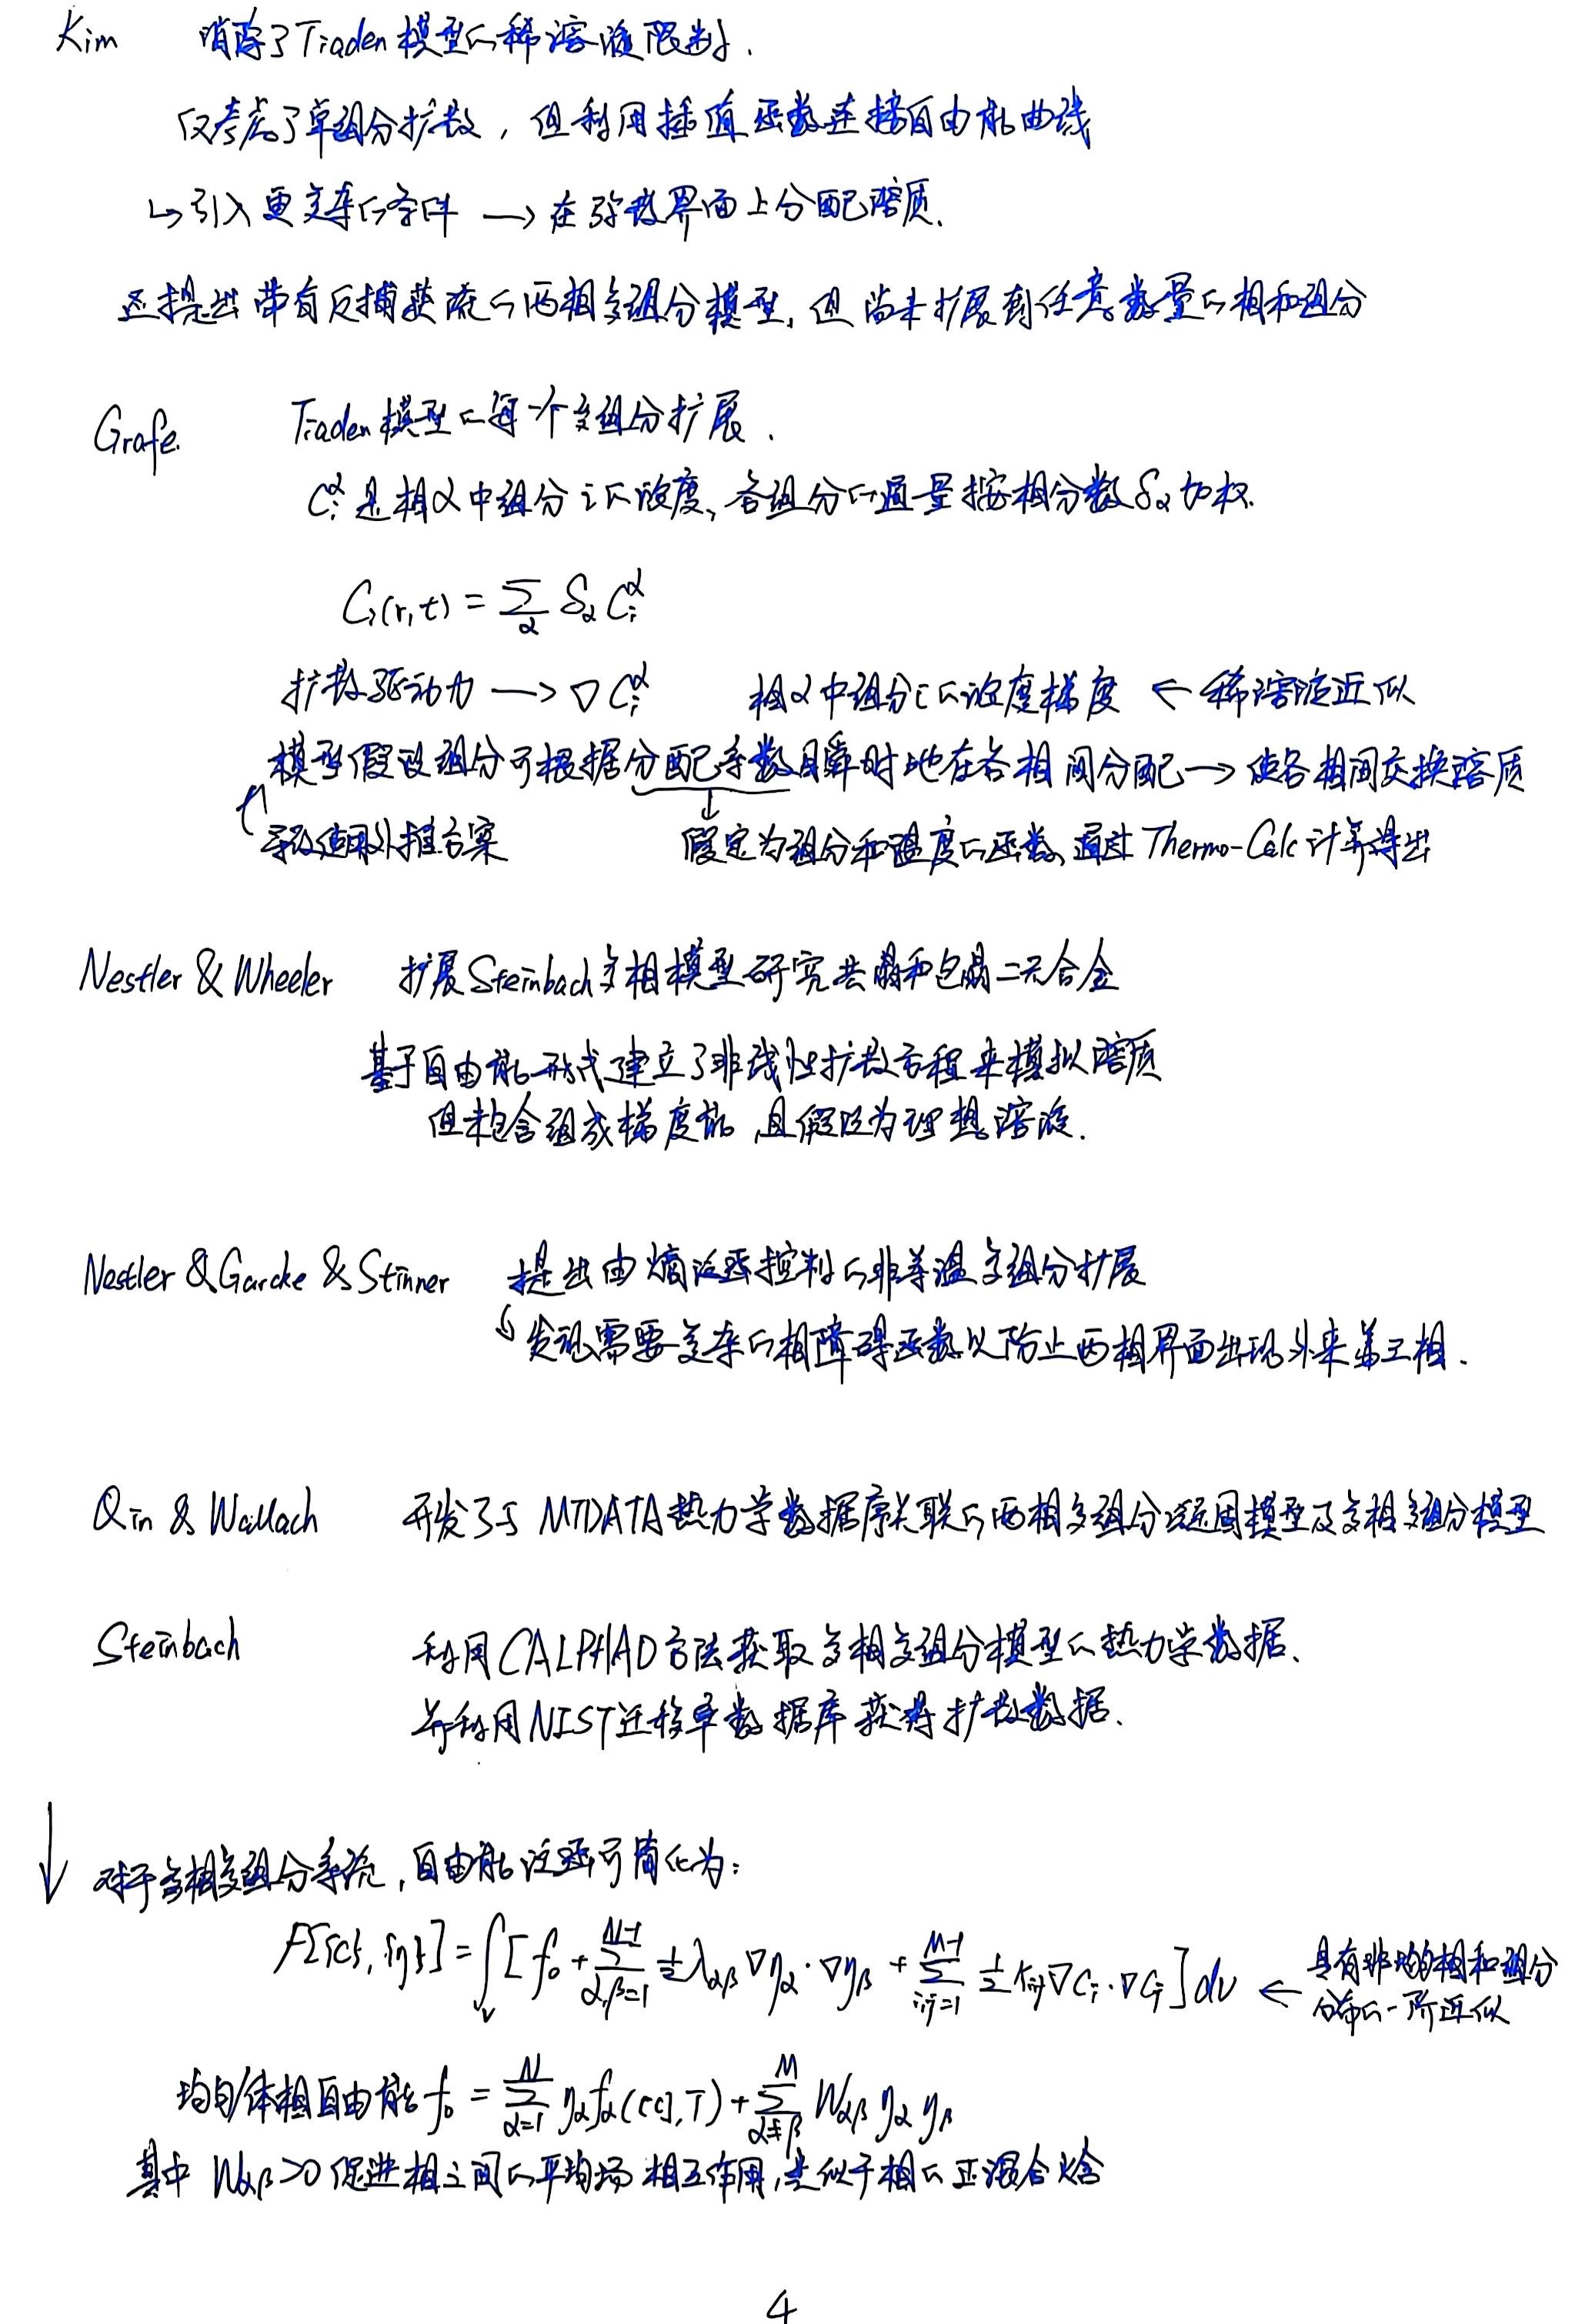 Kim 消除了Tiaden模型的稀溶液限制.
仅考虑了单组分扩散，但利用插值函数连接自由能曲线
↳引入更复杂的条件 → 在弥散界面上分配溶质.
还提出带有反捕获流的两相多组分模型，但尚未扩展到任意数量的相和组分
Grafe. Tiaden模型的每一个多组分扩展.
C_i^α 是相α中组分i的浓度、各组分的通量按相分数δ_α加权.
C_i(r,t) = ∑_α δ_α C_i^α
扩散驱动力 → ∇C_i^α 相α中组分i的浓度梯度 ← 稀溶液近似
模型假设组分可根据分配系数瞬时地在各相间分配 → 使各相间交换溶质
使用外推方案 假定为组分和温度的函数，通过Thermo-Calc计算得出
Nestler & Wheeler 扩展Steinbach多相模型研究共晶和包晶二元合金
基于自由能形式建立了非线性扩散方程来模拟溶质
但未包含组成梯度能，且假设为理想溶液.
Nestler & Garcke & Stinner 提出由熵泛函控制的非等温多组分扩展
↳发现需要复杂的相障碍函数以防止两相界面出现外来第三相.
Qin & Wallach 开发了与MTDATA热力学数据库关联的两相多组分凝固模型及多相多组分模型
Steinbach 利用CALPHAD方法获取多相多组分模型的热力学数据、
并利用NIST迁移率数据库获得扩散数据.
↓ 对于多相多组分系统，自由能泛函可简化为:
F[{c},{η}] = ∫_V [f_0 + ∑_{α,β=1}^{N-1} ½ λ_{αβ} ∇η_α·∇η_β + ∑_{i,j=1}^{M-1} ½ κ_{ij} ∇C_i·∇C_j] dv ← 具有非均匀相和组分
分布的一阶近似
均匀体相自由能 f_0 = ∑_{α=1}^{N} η_α f_α([c],T) + ∑_{α≠β}^{M} W_{αβ} η_α η_β
其中 W_{αβ}>0 促进相之间的平均场相互作用，类似于相的正混合焓
4